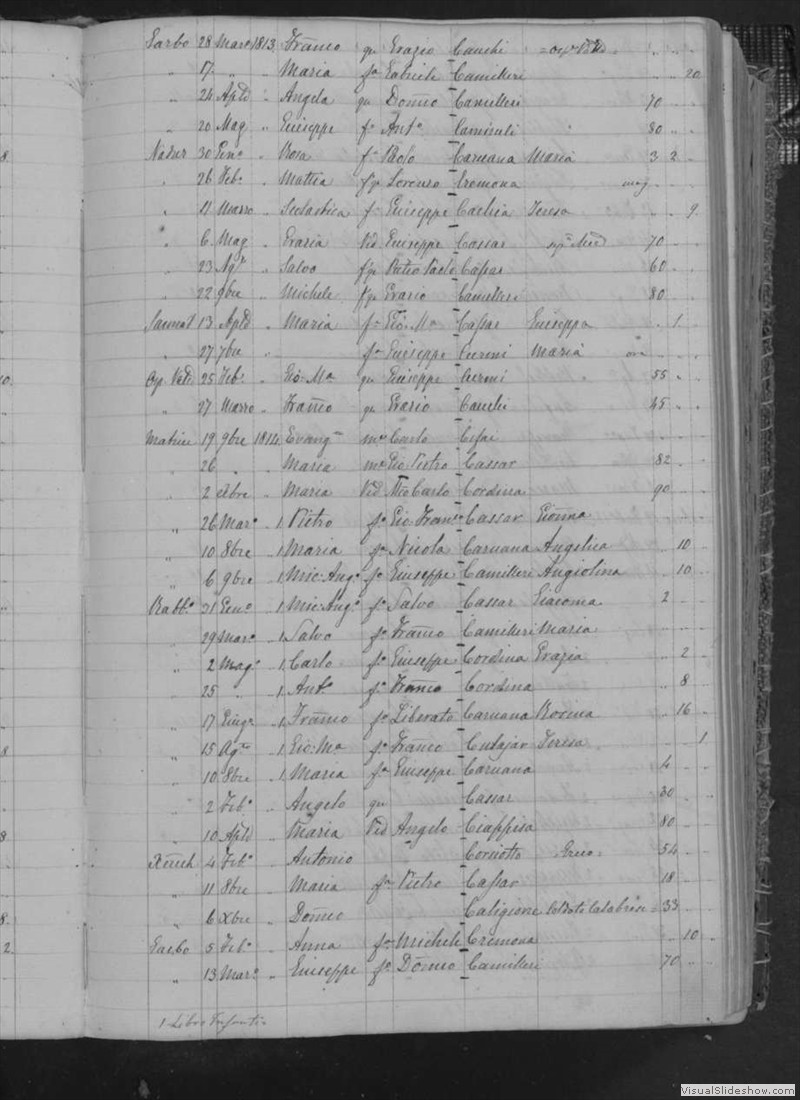 Garbo 28 Marzo 1813 Franco qu Grazio Cauchi = osp Vitto
" 17 " " Maria fa Gabriele Camilleri " " 20
" 24 Aple " Angela qu Domco Camilleri 70
" 20 Mag " Giuseppe fo Anto Camiruli 80
Nadur 30 Geno " Rosa fa Paolo Caruana Maria 3 2
" 26 Febo " Mattia fqu Lorenzo Cremona
" 11 Marzo " Scolastica fa Giuseppe Cachia Teresa 9
" 6 Mag " Grazia Vid Giuseppe Cassar 70
" 23 Agto " Salvo fqu Pietro Paolo Cassar 60
" 22 9bre " Michele fqu Grazio Camilleri 80
Sannat 13 Aple " Maria fa Gio: Ma Cassar Giuseppa 1
" 27 7bre " fa Giuseppe Curmi Maria ore
Osp Vitto 25 Febo " Gio: Ma qu Giuseppe Curmi 55
" 27 Marzo " Franco qu Grazio Cauchi 45
Matrice 19 9bre 1814 Evang mo Carlo
" 26 " " Maria mo Gio Pietro Cassar 82
" 2 xbre " Maria Vid Carlo Cordina 90
" 26 Maro " 1 Pietro fo Gio Franco Cassar Gionna
" 10 8bre " 1 Maria fa Nicola Caruana Angelica " 10
" 6 9bre " 1 Mic: Ango fo Giuseppe Camilleri Angiolina " 10
Rabbo 21 Geno " 1 Mic: Ango fo Salvo Cassar Giacoma 2
" 29 Maro " 1 Salvo fo Franco Camilleri Maria
" 2 Mago " 1 Carlo fo Giuseppe Cordina Grazia " 2
" 25 " " 1 Anto fo Franco Cordina " 8
" 17 Giug " 1 Franco fo Liberato Caruana Rosina " 16
" 15 Ago " 1 Gio: Ma fo Franco Cutajar Teresa 1
" 10 8bre " 1 Maria fa Giuseppe Caruana 4
" 2 Febo " Angelo qu Cassar 30
" 10 Aple " Maria Vid Angelo Ciappisa 80
Xeuch 4 Febo " Antonio Corsiotto Greco 54
" 11 8bre " Maria fa Pietro Cassar 18
" 6 xbre " Domco Caligione Soldato Calabrese = 33
Garbo 5 Febo " Anna fa Michele Cremona " 10
" 13 Maro " Giuseppe fo Domco Camilleri 70
1 Libro Infanti
8
10
8
8
8
2
VisualSlideshow.com